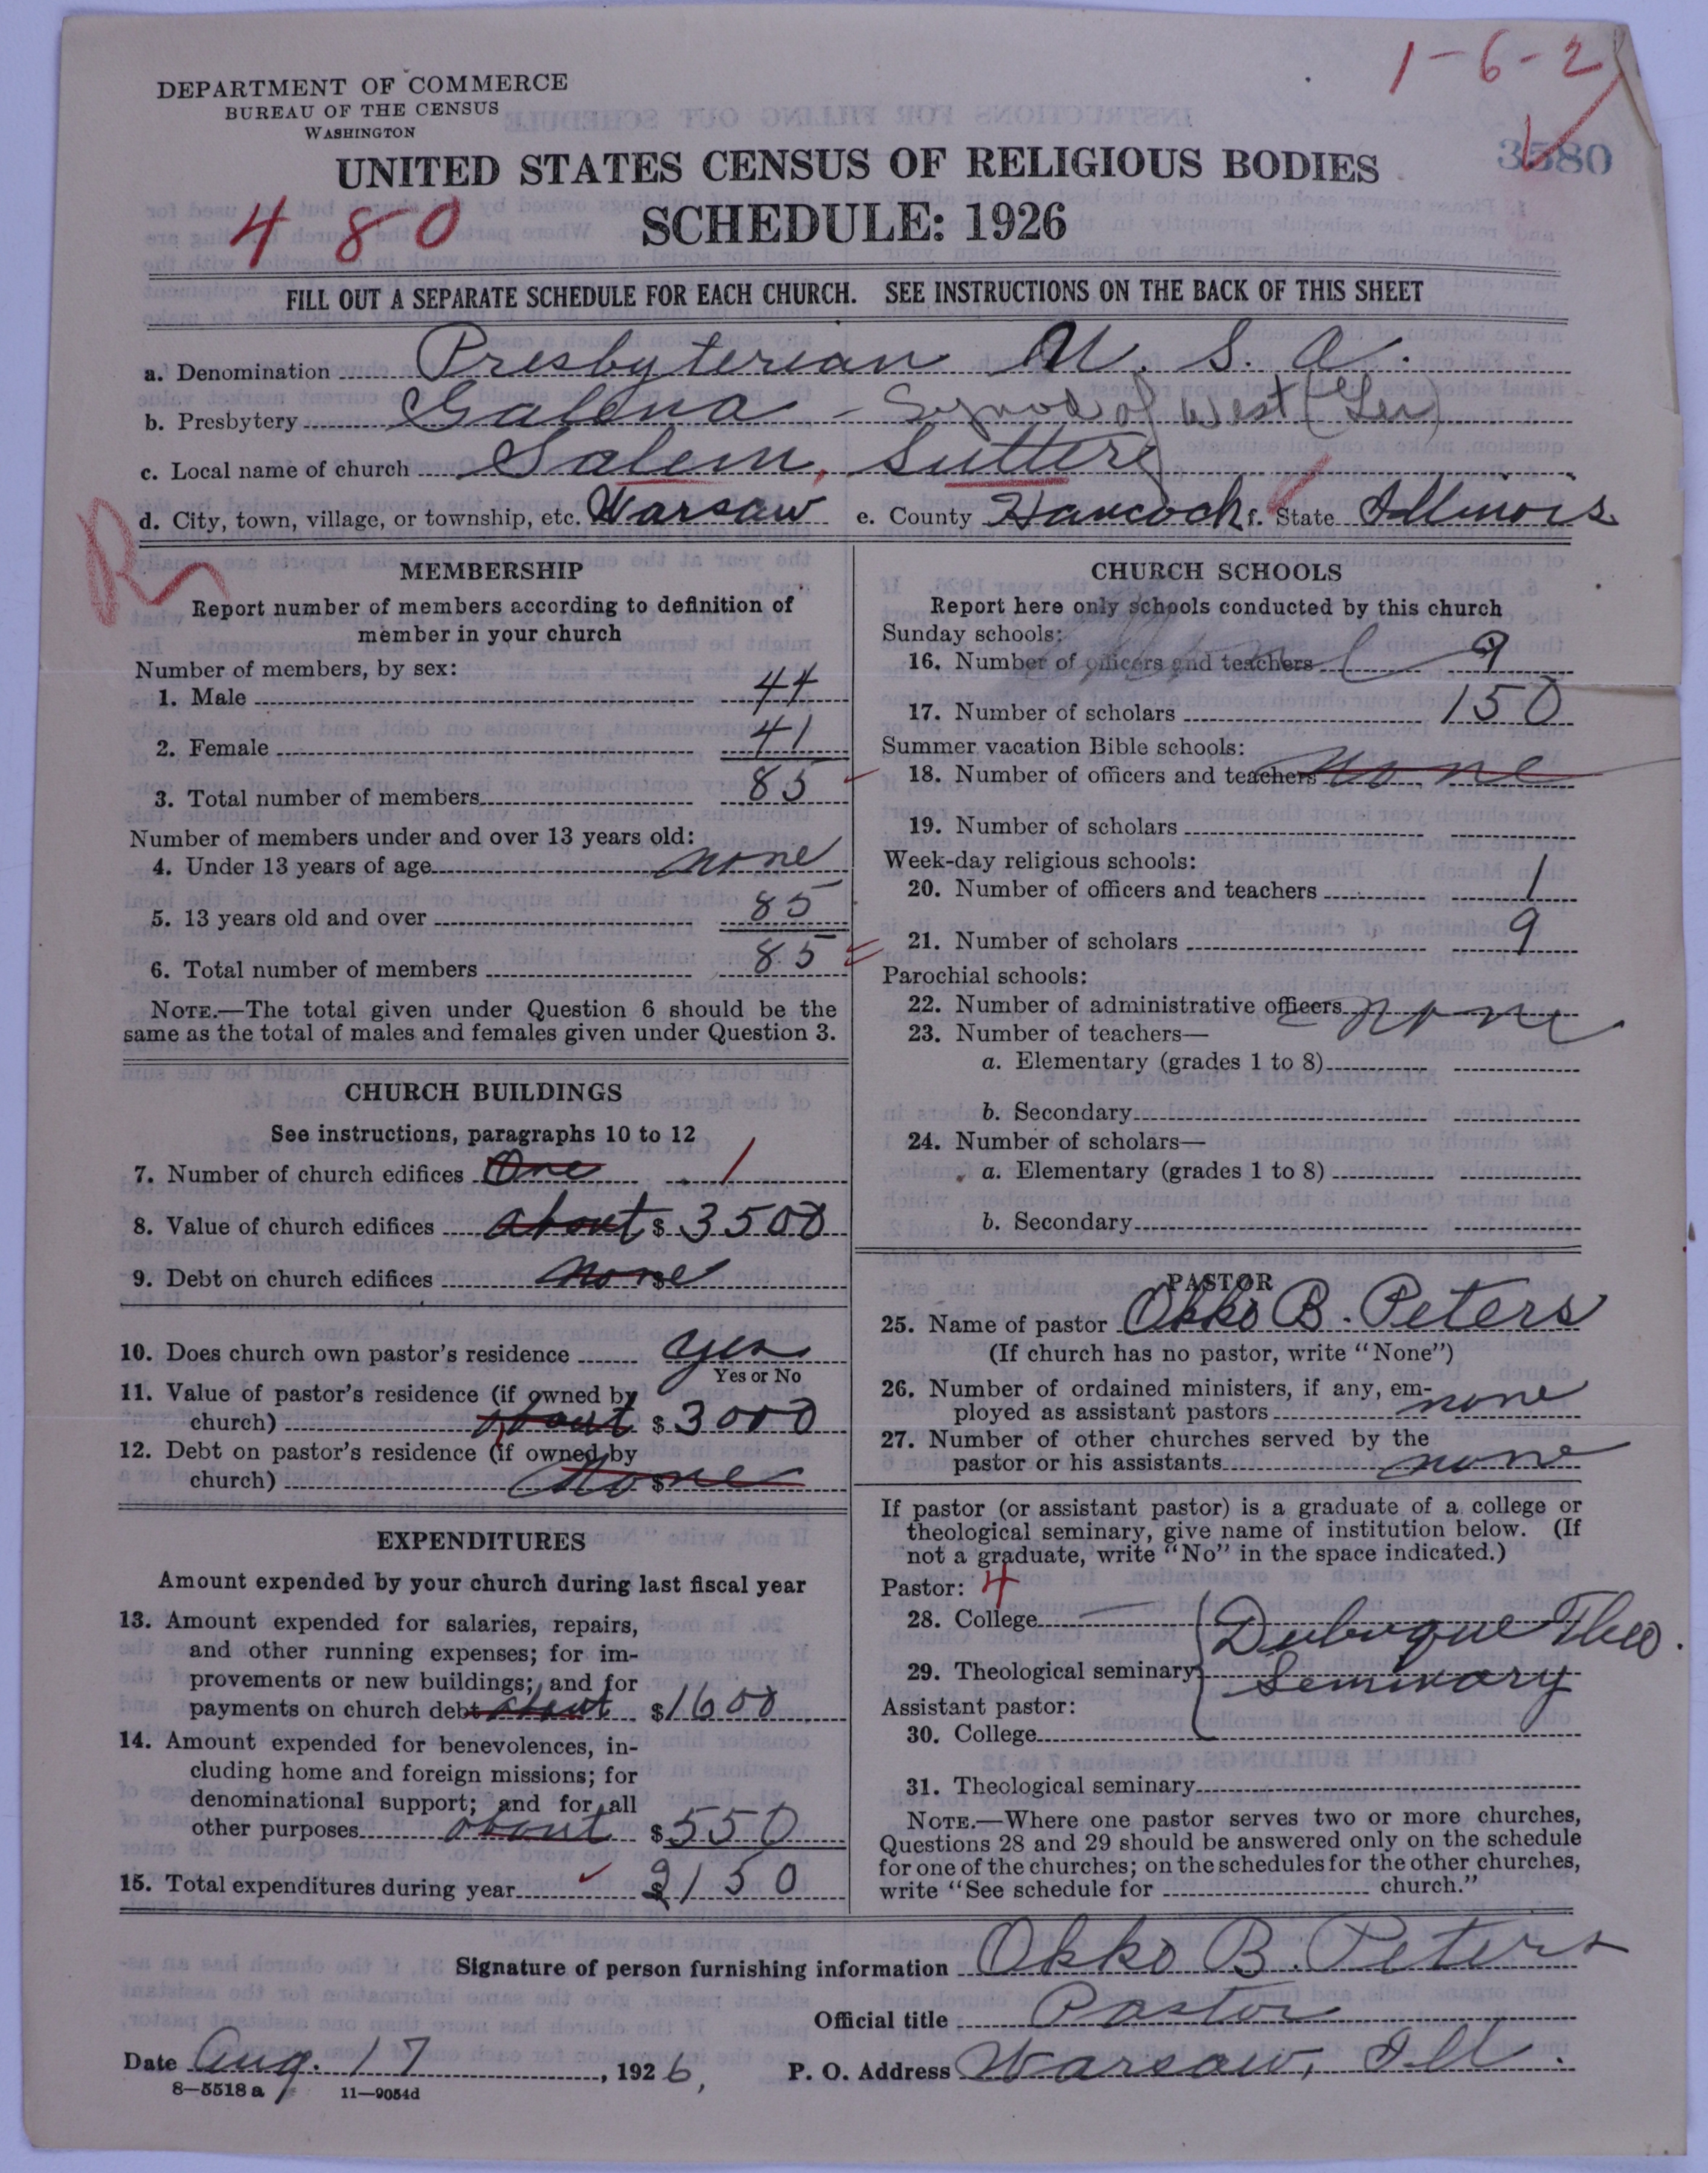 1-6-2
DEPARTMENT OF COMMERCE
BUREAU OF THE CENSUS
WASHINGTON
3580
UNITED STATES CENSUS OF RELIGIOUS BODIES
480
SCHEDULE: 1926
FILL OUT A SEPARATE SCHEDULE FOR EACH CHURCH. SEE INSTRUCTIONS ON THE BACK OF THIS SHEET
a. Denomination Presbyterian U. S. A.
b. Presbytery Galena - Synod of West (Ger)
c. Local name of church Salem, Sutter
d. City, town, village, or township, etc. Warsaw e. County Hancock f. State Illinois
R
MEMBERSHIP
Report number of members according to definition of
member in your church
Number of members, by sex:
1. Male 44
2. Female 41
3. Total number of members 85
Number of members under and over 13 years old:
4. Under 13 years of age none
5. 13 years old and over 85
6. Total number of members 85
NOTE.—The total given under Question 6 should be the
same as the total of males and females given under Question 3.
CHURCH BUILDINGS
See instructions, paragraphs 10 to 12
7. Number of church edifices One 1
8. Value of church edifices about $ 3500
9. Debt on church edifices none $
10. Does church own pastor's residence yes
Yes or No
11. Value of pastor's residence (if owned by
church) about $ 3000
12. Debt on pastor's residence (if owned by
church) None $
EXPENDITURES
Amount expended by your church during last fiscal year
13. Amount expended for salaries, repairs,
and other running expenses; for im-
provements or new buildings; and for
payments on church debt about $ 1600
14. Amount expended for benevolences, in-
cluding home and foreign missions; for
denominational support; and for all
other purposes about $ 550
15. Total expenditures during year $ 2150
CHURCH SCHOOLS
Report here only schools conducted by this church
Sunday schools:
16. Number of officers and teachers 9
17. Number of scholars 150
Summer vacation Bible schools:
18. Number of officers and teachers None
19. Number of scholars
Week-day religious schools:
20. Number of officers and teachers 1
21. Number of scholars 9
Parochial schools:
22. Number of administrative officers none
23. Number of teachers—
a. Elementary (grades 1 to 8)
b. Secondary
24. Number of scholars—
a. Elementary (grades 1 to 8)
b. Secondary
PASTOR
25. Name of pastor Okko B. Peters
(If church has no pastor, write "None")
26. Number of ordained ministers, if any, em-
ployed as assistant pastors none
27. Number of other churches served by the
pastor or his assistants none
If pastor (or assistant pastor) is a graduate of a college or
theological seminary, give name of institution below. (If
not a graduate, write "No" in the space indicated.)
Pastor: 4
28. College Dubuque Theo.
29. Theological seminary Seminary
Assistant pastor:
30. College
31. Theological seminary
NOTE.—Where one pastor serves two or more churches,
Questions 28 and 29 should be answered only on the schedule
for one of the churches; on the schedules for the other churches,
write "See schedule for church."
Signature of person furnishing information Okko B. Peters
Official title Pastor
Date Aug. 17, 1926, P. O. Address Warsaw, Ill.
8—5518 a 11—9054d